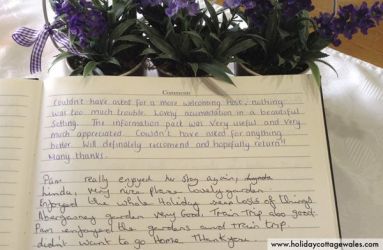 Comments
Couldn't have asked for a more welcoming Host, nothing
was too much trouble. Lovely accomodation in a beautiful
setting. The information pack was very useful and very
much appreciated. Couldn't have asked for anything
better. Will definately reccomend and hopefully return!!
Many thanks.
Pam really enjoyed her stay again,
Linda, very nice place lovely garden.
Enjoyed the whole Holiday seen lots of things
Aberglasney garden very Good. Train Trip also good.
Pam enjoyed the gardens and Train Trip.
didn't want to go Home. Thankyou
www.holidaycottagewales.com